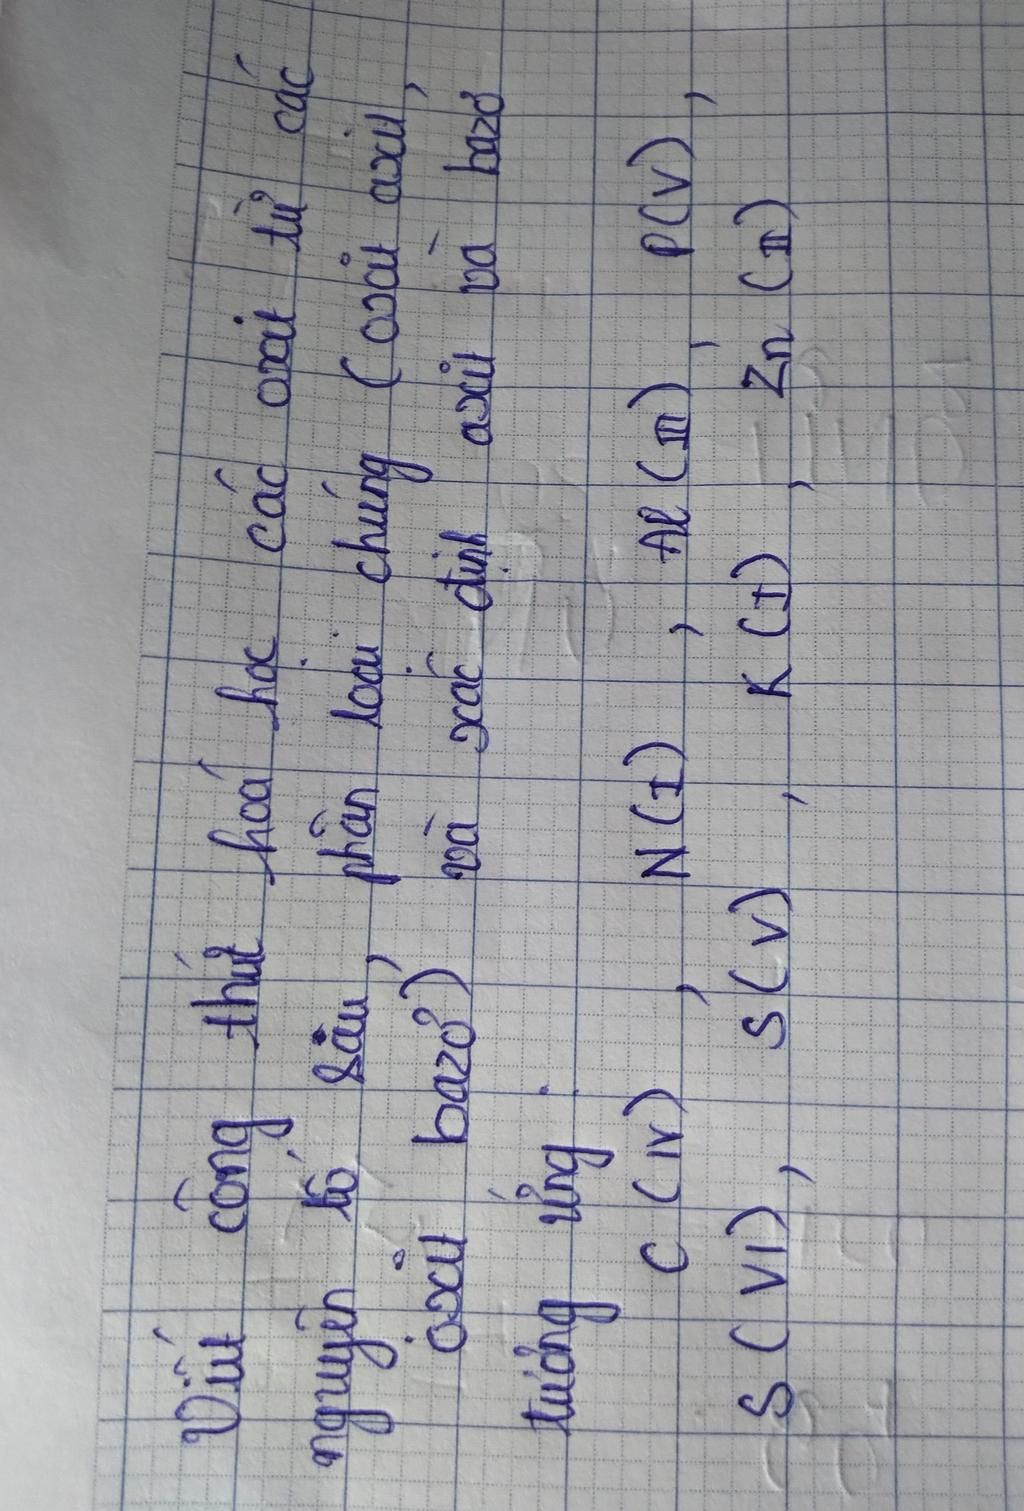 Viết công thức hoá học các oxit từ các
nguyên tố sau, phân loại chúng (oxit axit,
oxit bazơ) và xác định axit và bazơ
tương ứng.
C (IV), N(I), Al (III), P(V),
S (VI), S(V), K (I), Zn (II)